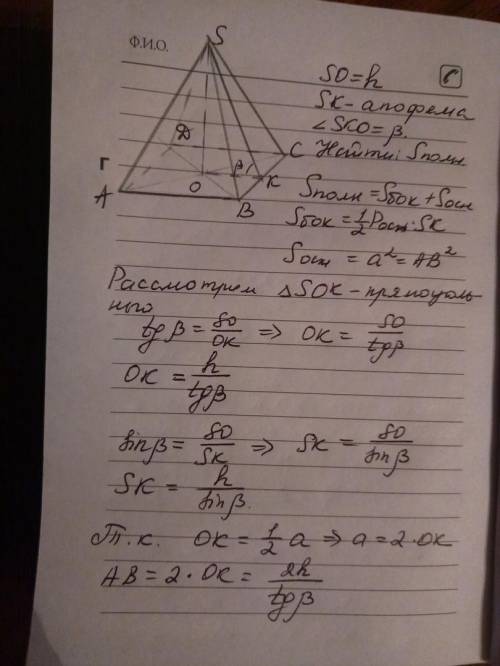 Ф.И.О.
S
SO = h
SK – апофема
∠SKO = β.
Найти: Sполн
D
C
β
г
A
O
K
B
Sполн = Sбок + Sосн
Sбок = 1/2 Pосн · SK
Sосн = a² = AB²
Рассмотрим △SOK – прямоуголь
ного
tgβ = SO/OK ⇒ OK = SO/tgβ
OK = h/tgβ
sinβ = SO/SK ⇒ SK = SO/sinβ
SK = h/sinβ.
Т.к. OK = 1/2 a ⇒ a = 2·OK
AB = 2·OK = 2h/tgβ